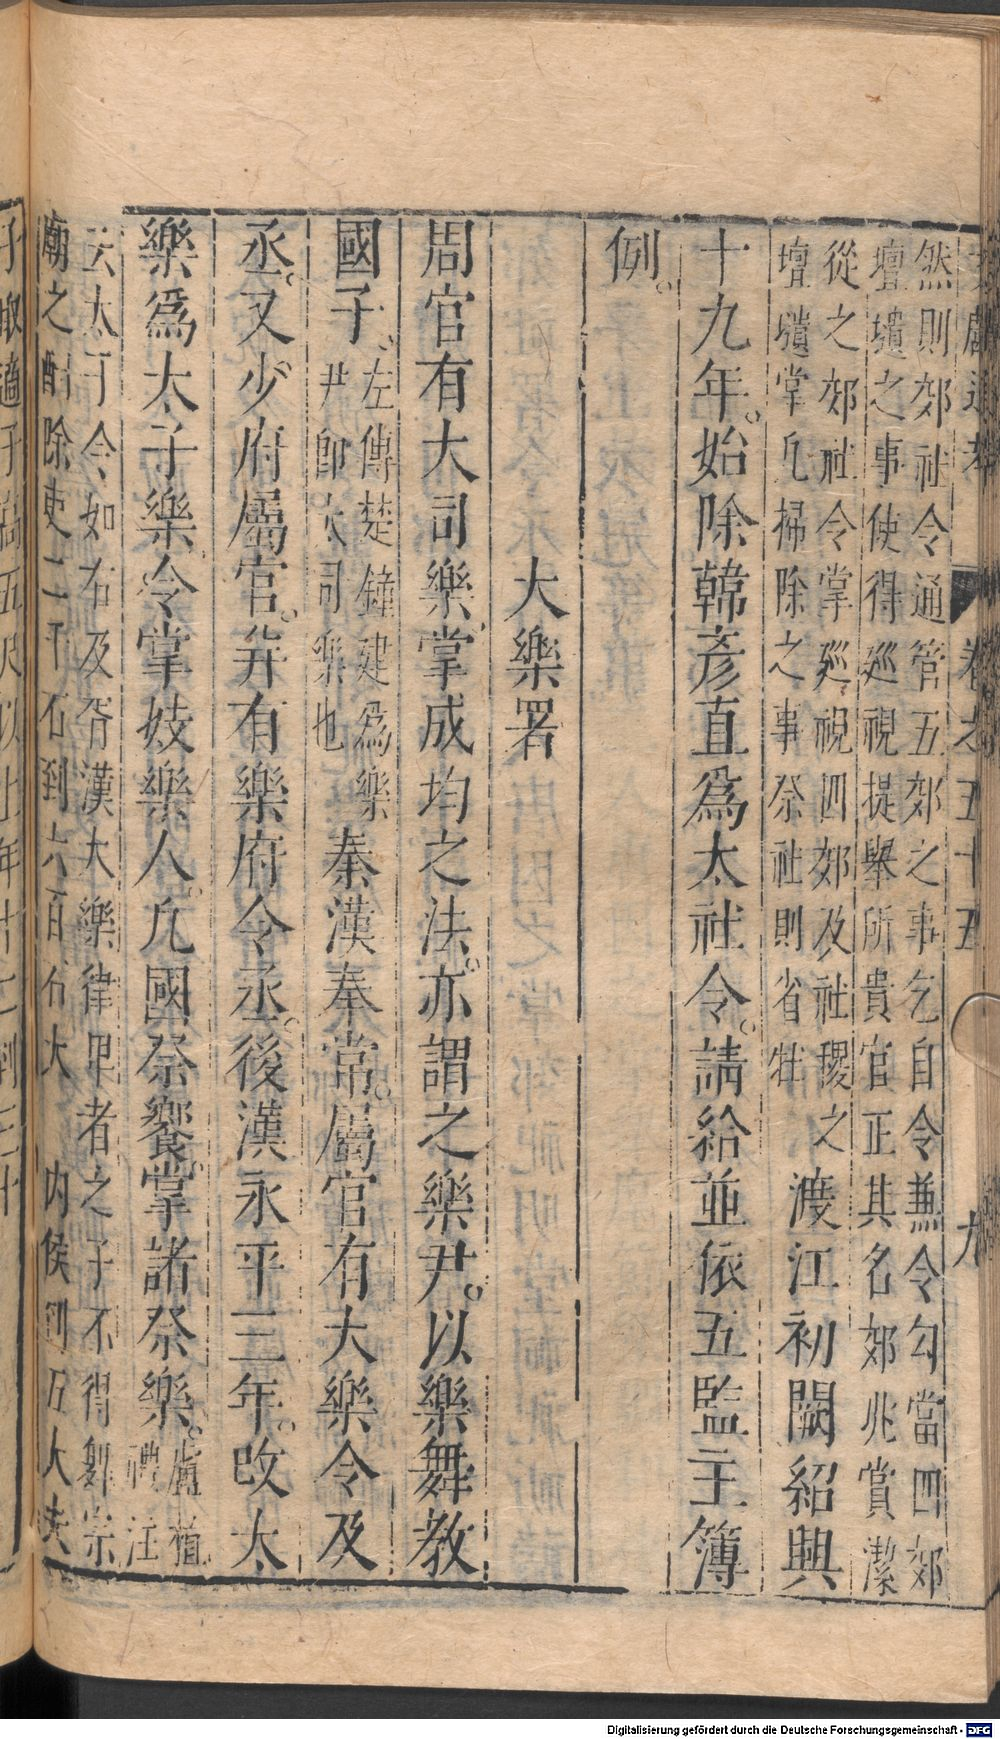 卷之五十五 九
然則郊社令通管五郊之事乞自令兼令勾當四郊
壇壝之事使得廵視提舉所貴官正其名郊兆嚴潔
從之郊社令掌廵視四郊及社稷之
壇壝掌凡掃除之事祭社則省牲
渡江初闕紹興
十九年。始除韓彦直爲太社令。請給並依五監主簿
例。
大樂署
周官有大司樂掌成均之法。亦謂之樂尹。以樂舞教
國子、
左傳楚鐘建爲樂
尹卽大司樂也
秦漢奉常。屬官有大樂令及
丞。又少府屬官。并有樂府令丞。後漢永平三年。改太
樂爲太子樂令掌妓樂人。凡國祭饗。掌諸祭樂。
盧植
禮注
云太子令如右及胥漢大樂律卑者之子不得舞宗
廟之酎除吏二千石到六百石大 内侯到五大夫
子取適子高五尺以上年十二到三十
Digitalisierung gefördert durch die Deutsche Forschungsgemeinschaft - DFG